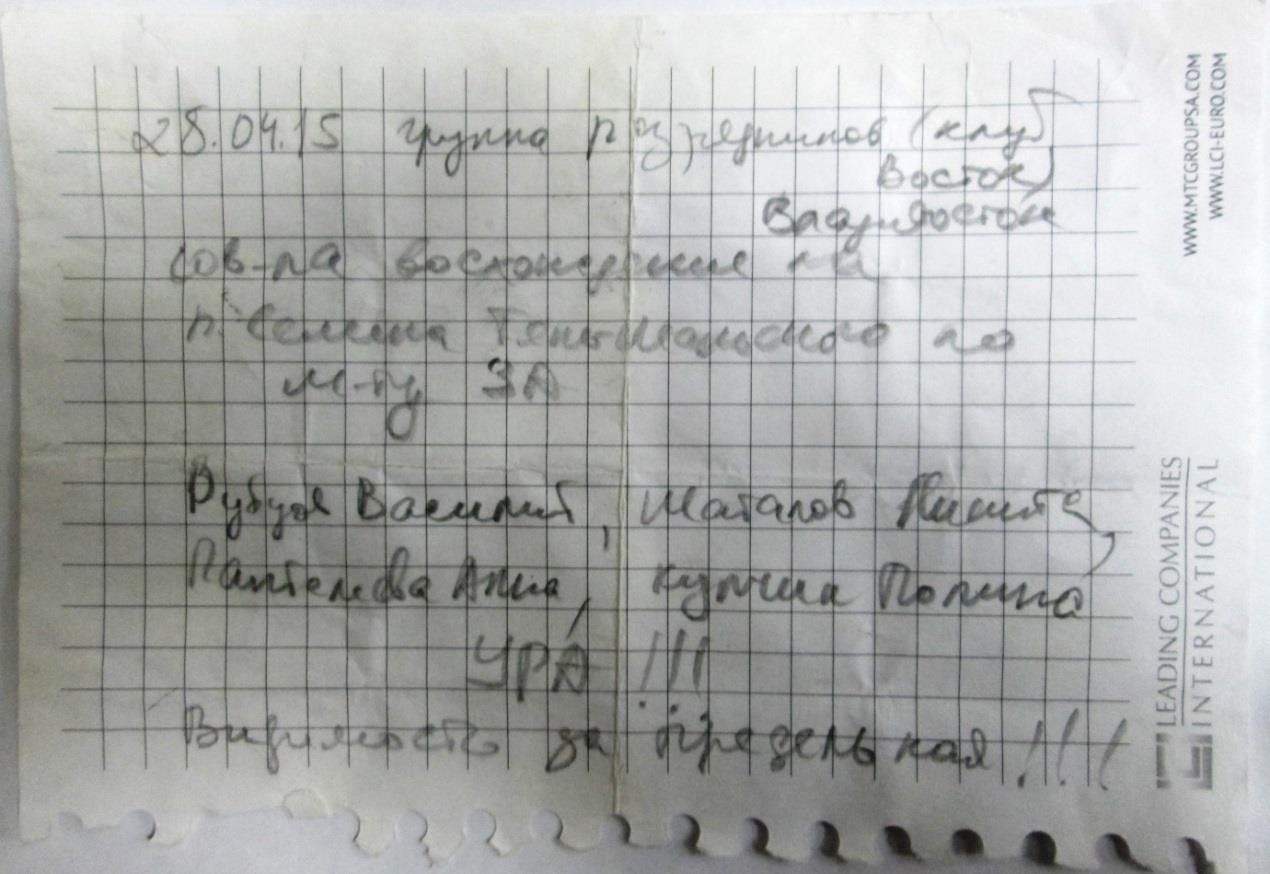 28.04.15 группа разрядников (клуб
Восток)
Владивосток
сов-ла восхождение на
п. Семёна Тяньшанского по
м-ту 3А
Василий, Шаталов Никита,
Пантелеева Анна, Купчик Полина
УРА !!!
Видимость за предельная !!!
WWW.MTCGROUPSA.COM
WWW.LCI-EURO.COM
LEADING COMPANIES
INTERNATIONAL